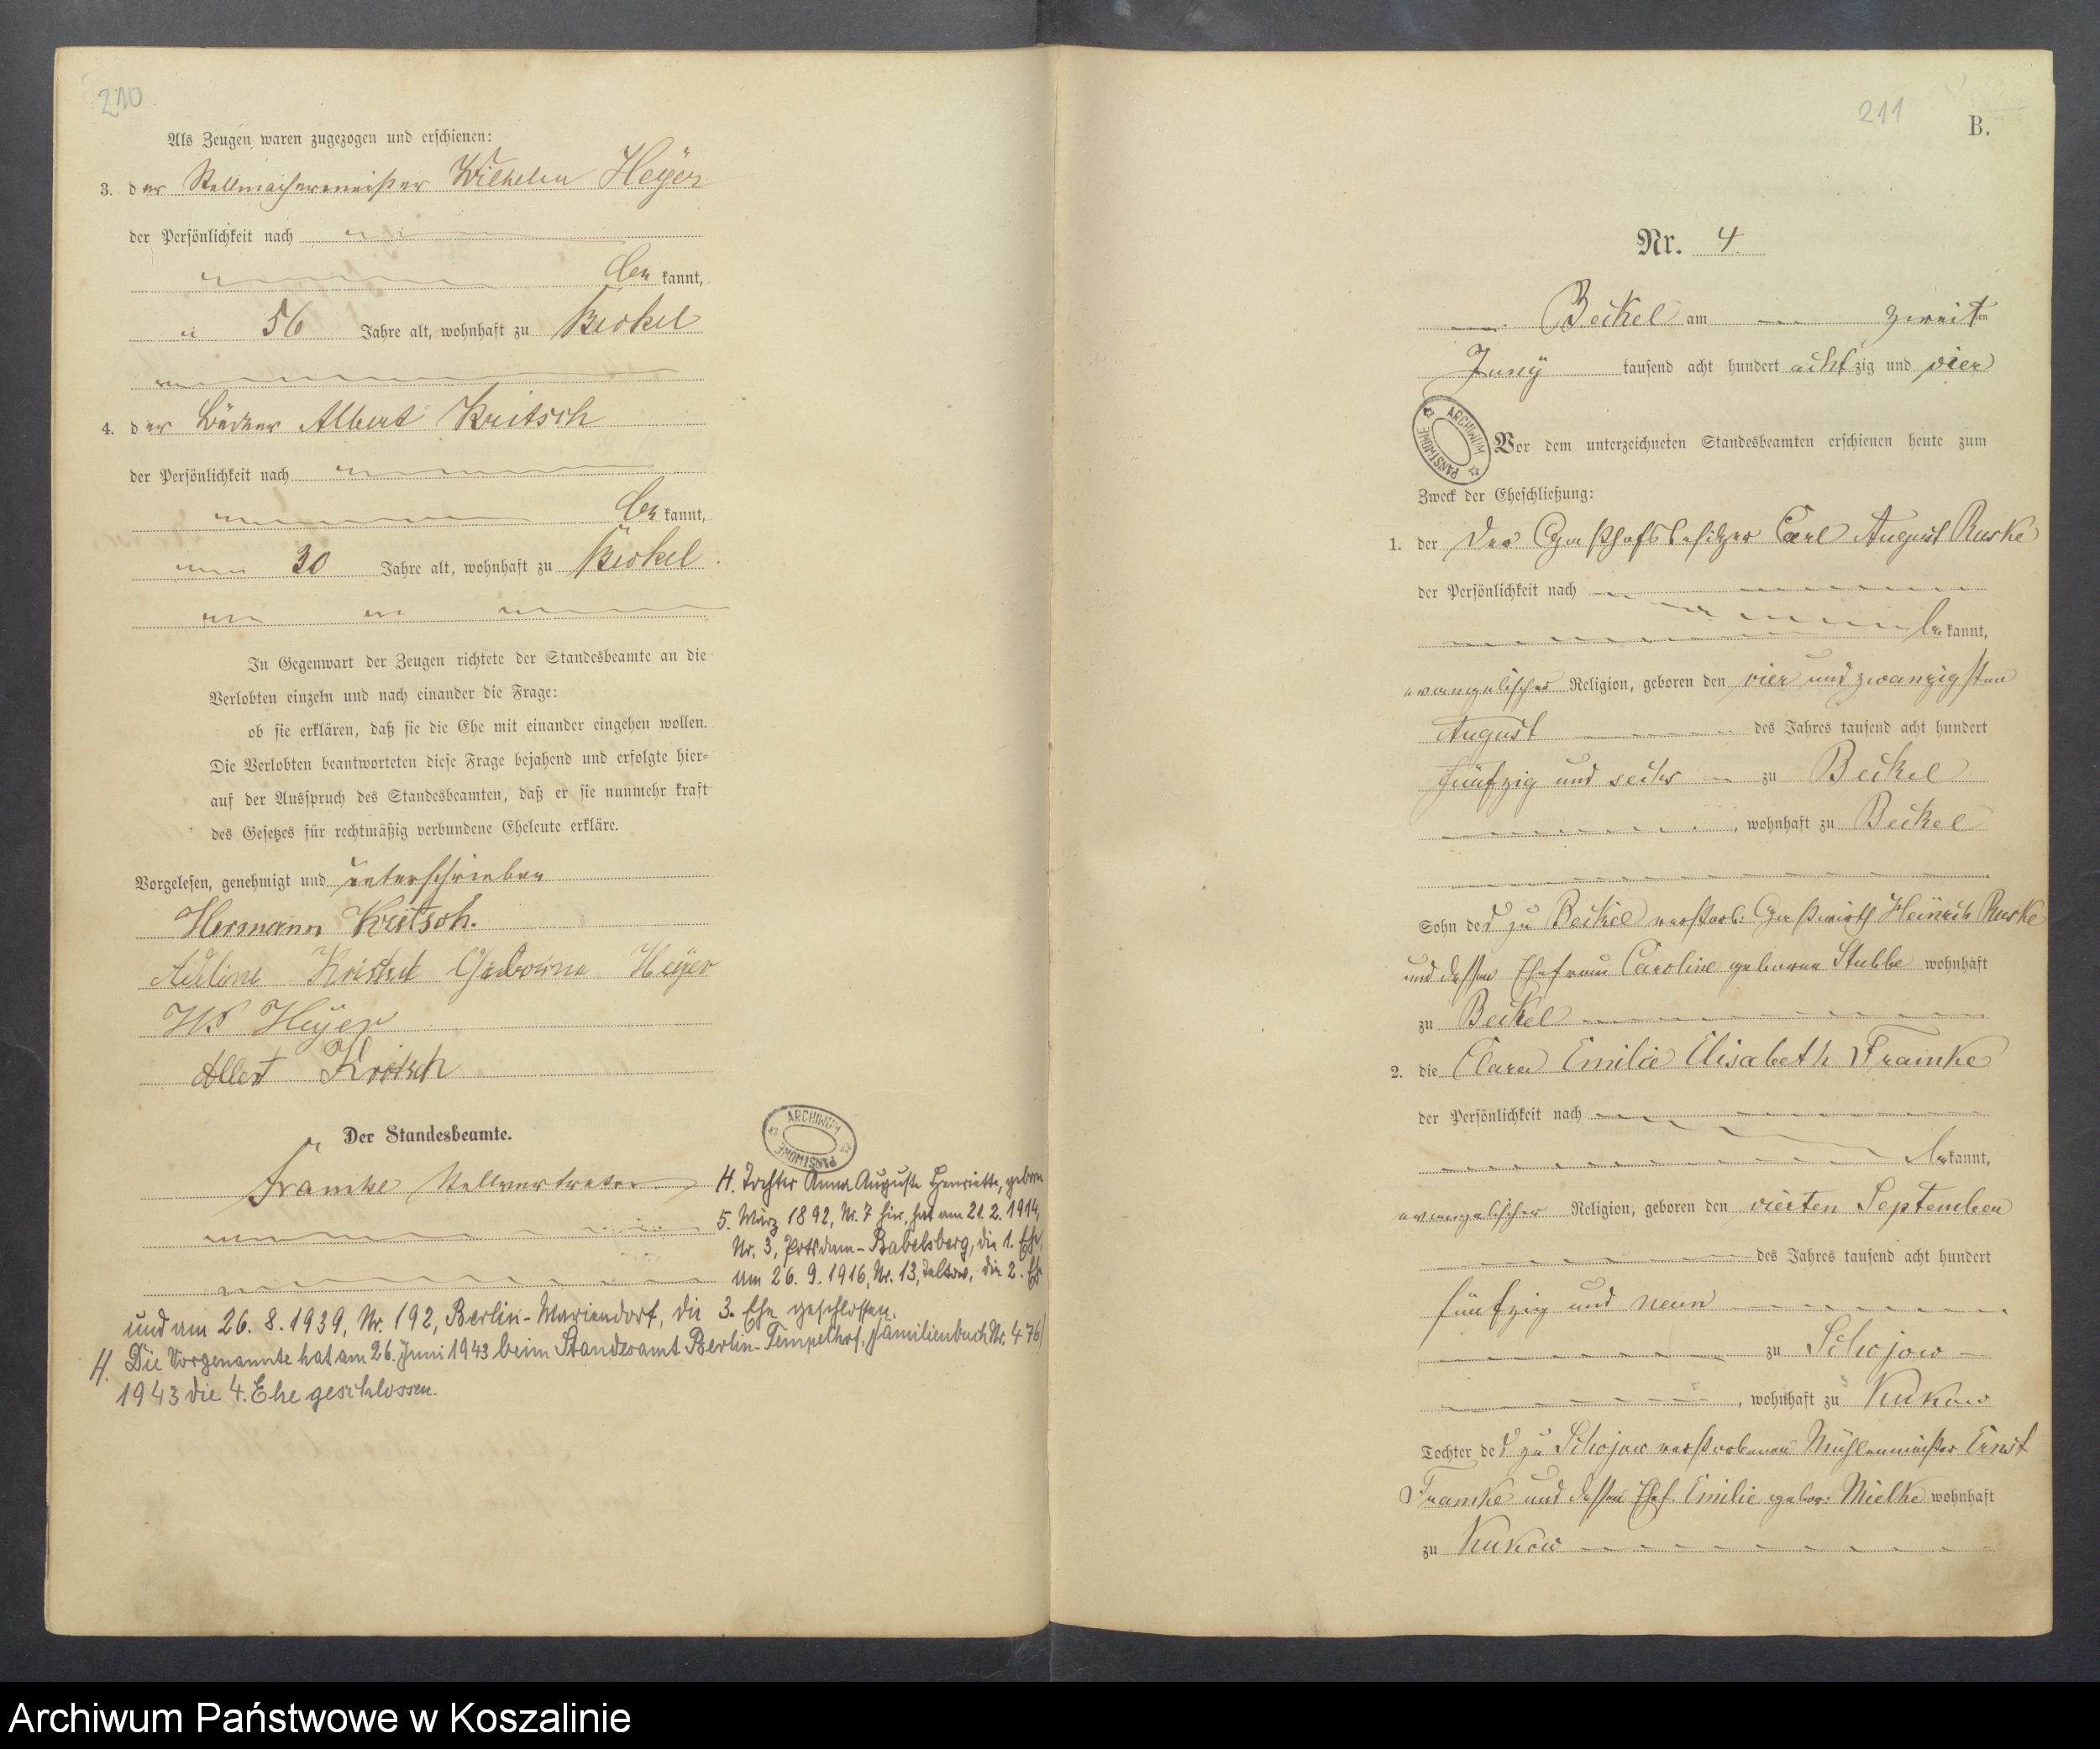 210
Als Zeugen waren zugezogen und erschienen:
3. der Stellmachermeister Wilhelm Heÿer
der Persönlichkeit nach
be kannt,
56 Jahre alt, wohnhaft zu Beckel
4. der Bäcker Albert Kritsch
der Persönlichkeit nach
be kannt,
30 Jahre alt, wohnhaft zu Beckel
In Gegenwart der Zeugen richtete der Standesbeamte an die
Verlobten einzeln und nach einander die Frage:
ob sie erklären, daß sie die Ehe mit einander eingehen wollen.
Die Verlobten beantworteten diese Frage bejahend und erfolgte hier-
auf der Ausspruch des Standesbeamten, daß er sie nunmehr kraft
des Gesetzes für rechtmäßig verbundene Eheleute erkläre.
Vorgelesen, genehmigt und unterschrieben
Hermann Kritsch.
Adeline Heÿer
W. Heÿer
Albert Kritsch
Der Standesbeamte.
Framke Stellvertreter
ARCHIWUM PAŃSTWOWE
H. Tochter Anna Auguste Henriette, geboren
5. März 1892, Nr. 7 hier, hat am 21.2.1914,
Nr. 3, Potsdam-Babelsberg, die 1. Ehe,
am 26.9.1916, Nr. 13, Teltow, die 2. Ehe
und am 26.8.1939, Nr. 192, Berlin-Mariendorf, die 3. Ehe geschlossen.
H. Die Vorgenannte hat am 26. Juni 1943 beim Standesamt Berlin-Tempelhof, Familienbuch Nr. 476/
1943 die 4. Ehe geschlossen.
211
B.
Nr. 4.
Beckel am zweiten
Junÿ tausend acht hundert achtzig und vier
ARCHIWUM PAŃSTWOWE
Vor dem unterzeichneten Standesbeamten erschienen heute zum
Zweck der Eheschließung:
1. der Der Gasthofsbesitzer Carl August Ruske
der Persönlichkeit nach
be kannt,
evangelischer Religion, geboren den vier und zwanzigsten
August des Jahres tausend acht hundert
fünfzig und sechs zu Beckel
, wohnhaft zu Beckel
Sohn des zu Beckel verstorb: Gastwirth Heinrich Ruske
und dessen Ehefrau Caroline geborne Stubbe wohnhaft
zu Beckel
2. die Clara Emilie Elisabeth Framke
der Persönlichkeit nach
be kannt,
evangelischer Religion, geboren den vierten September
des Jahres tausend acht hundert
fünfzig und neun
zu Schojow
, wohnhaft zu Kukow
Tochter des zu Schojow verstorbenen Mühlenmeister Ernst
Framke und dessen Ehef. Emilie gebor: Mielke wohnhaft
zu Kukow
Archiwum Państwowe w Koszalinie